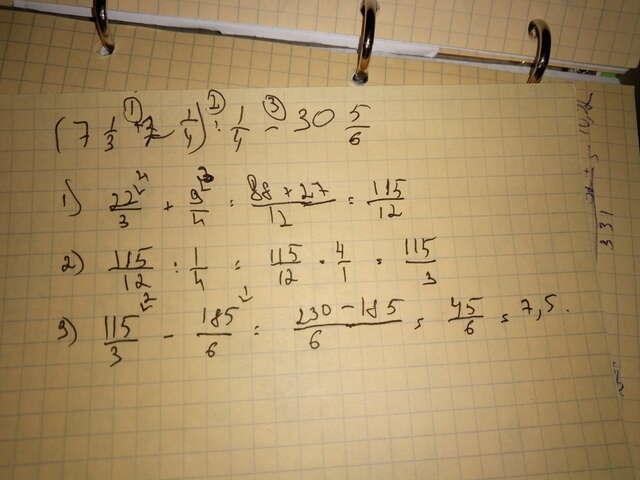 (7 1/3 + 2 1/4) : 1/4 - 30 5/6
① ② ③
1) 22/3 ⁴ + 9/4 ³ = 88 + 27/12 = 115/12
2) 115/12 : 1/4 = 115/12 · 4/1 = 115/3
3) 115/3 ² - 185/6 ¹ = 230 - 185/6 = 45/6 = 7,5.
331